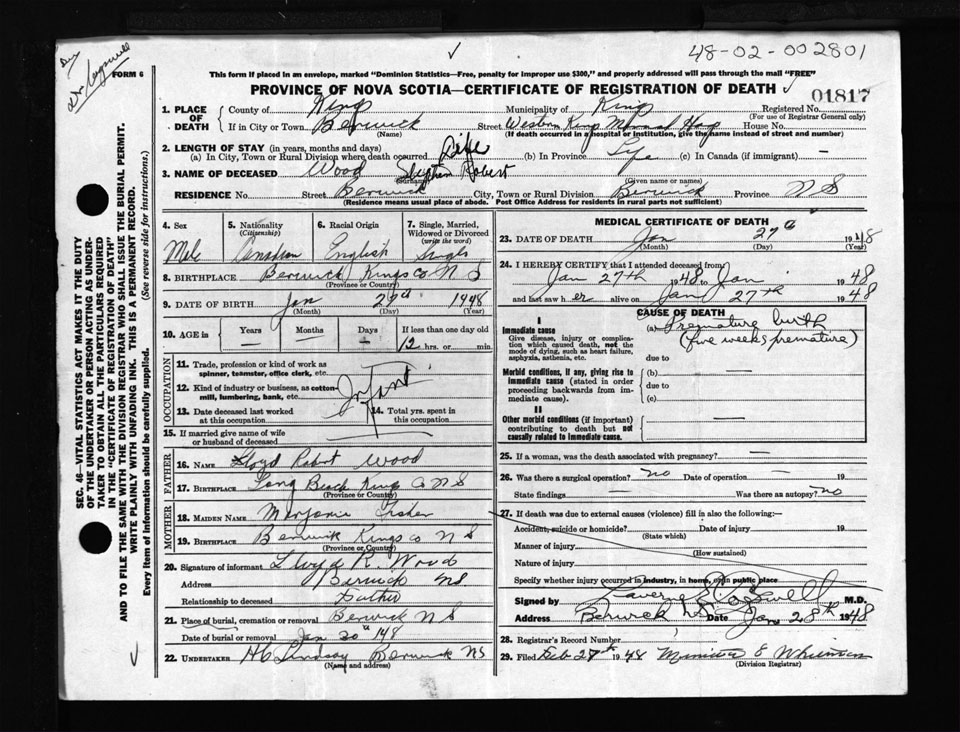 48-02-002801
FORM 6
This form if placed in an envelope, marked "Dominion Statistics—Free, penalty for improper use $300," and properly addressed will pass through the mail "FREE"
PROVINCE OF NOVA SCOTIA—CERTIFICATE OF REGISTRATION OF DEATH
01817
1. PLACE OF DEATH County of Kings Municipality of Kings Registered No.
(For use of Registrar General only)
If in City or Town Berwick Street Western Kings House No.
(Name) (If death occurred in a hospital or institution, give the name instead of street and number)
2. LENGTH OF STAY (in years, months and days)
(a) In City, Town or Rural Division where death occurred Life (b) In Province Life (c) In Canada (if immigrant) —
3. NAME OF DECEASED Wood Stephen Robert
(Surname) (Given name or names)
RESIDENCE No. Street Berwick City, Town or Rural Division Berwick Province N S
(Residence means usual place of abode. Post Office Address for residents in rural parts not sufficient)
4. Sex 5. Nationality (Citizenship) 6. Racial Origin 7. Single, Married, Widowed or Divorced (write the word)
Male Canadian English Single
8. BIRTHPLACE Berwick Kings Co N S
(Province or Country)
9. DATE OF BIRTH Jan 27th 1948
(Month) (Day) (Year)
10. AGE in Years Months Days If less than one day old
— — — 12 hrs. or min.
OCCUPATION
11. Trade, profession or kind of work as spinner, teamster, office clerk, etc.
12. Kind of industry or business, as cotton-mill, lumbering, bank, etc. Infant
13. Date deceased last worked at this occupation
14. Total yrs. spent in this occupation
15. If married give name of wife or husband of deceased
FATHER
16. NAME Lloyd Robert Wood
17. BIRTHPLACE Long Beach Kings Co N S
(Province or Country)
MOTHER
18. MAIDEN NAME Marjorie
19. BIRTHPLACE Berwick Kings co N S
(Province or Country)
20. Signature of informant Lloyd R. Wood
Address Berwick NS
Relationship to deceased Father
21. Place of burial, cremation or removal Berwick N S
Date of burial or removal Jan 30th '48
22. UNDERTAKER H C Lindsay Berwick NS
(Name and address)
MEDICAL CERTIFICATE OF DEATH
23. DATE OF DEATH Jan 27th 1948
(Month) (Day) (Year)
24. I HEREBY CERTIFY that I attended deceased from
Jan 27th 1948 to Jan 1948
and last saw h er alive on Jan 27th 1948
CAUSE OF DEATH
I
Immediate cause
Give disease, injury or complication which caused death, not the mode of dying, such as heart failure, asphyxia, asthenia, etc.
(a) Premature birth
(five weeks premature)
due to
Morbid conditions, if any, giving rise to immediate cause (stated in order proceeding backwards from immediate cause).
(b) —
due to
(c)
II
Other morbid conditions (if important) contributing to death but not causally related to immediate cause.
25. If a woman, was the death associated with pregnancy? —
26. Was there a surgical operation? no Date of operation — 19
State findings — Was there an autopsy? no
27. If death was due to external causes (violence) fill in also the following:—
Accident, suicide or homicide? Date of injury 19
(State which)
Manner of injury
(How sustained)
Nature of injury
Specify whether injury occurred in industry, in home, or in public place
Signed by M.D.
Address Berwick Date Jan 28th 1948
28. Registrar's Record Number
29. Filed Feb 1948
(Division Registrar)
SEC. 46—VITAL STATISTICS ACT MAKES IT THE DUTY
OF THE UNDERTAKER OR PERSON ACTING AS UNDER-
TAKER TO OBTAIN ALL THE PARTICULARS REQUIRED
IN THE "CERTIFICATE OF REGISTRATION OF DEATH"
AND TO FILE THE SAME WITH THE DIVISION REGISTRAR WHO SHALL ISSUE THE BURIAL PERMIT.
WRITE PLAINLY WITH UNFADING INK. THIS IS A PERMANENT RECORD.
Every item of Information should be carefully supplied. (See reverse side for instructions.)